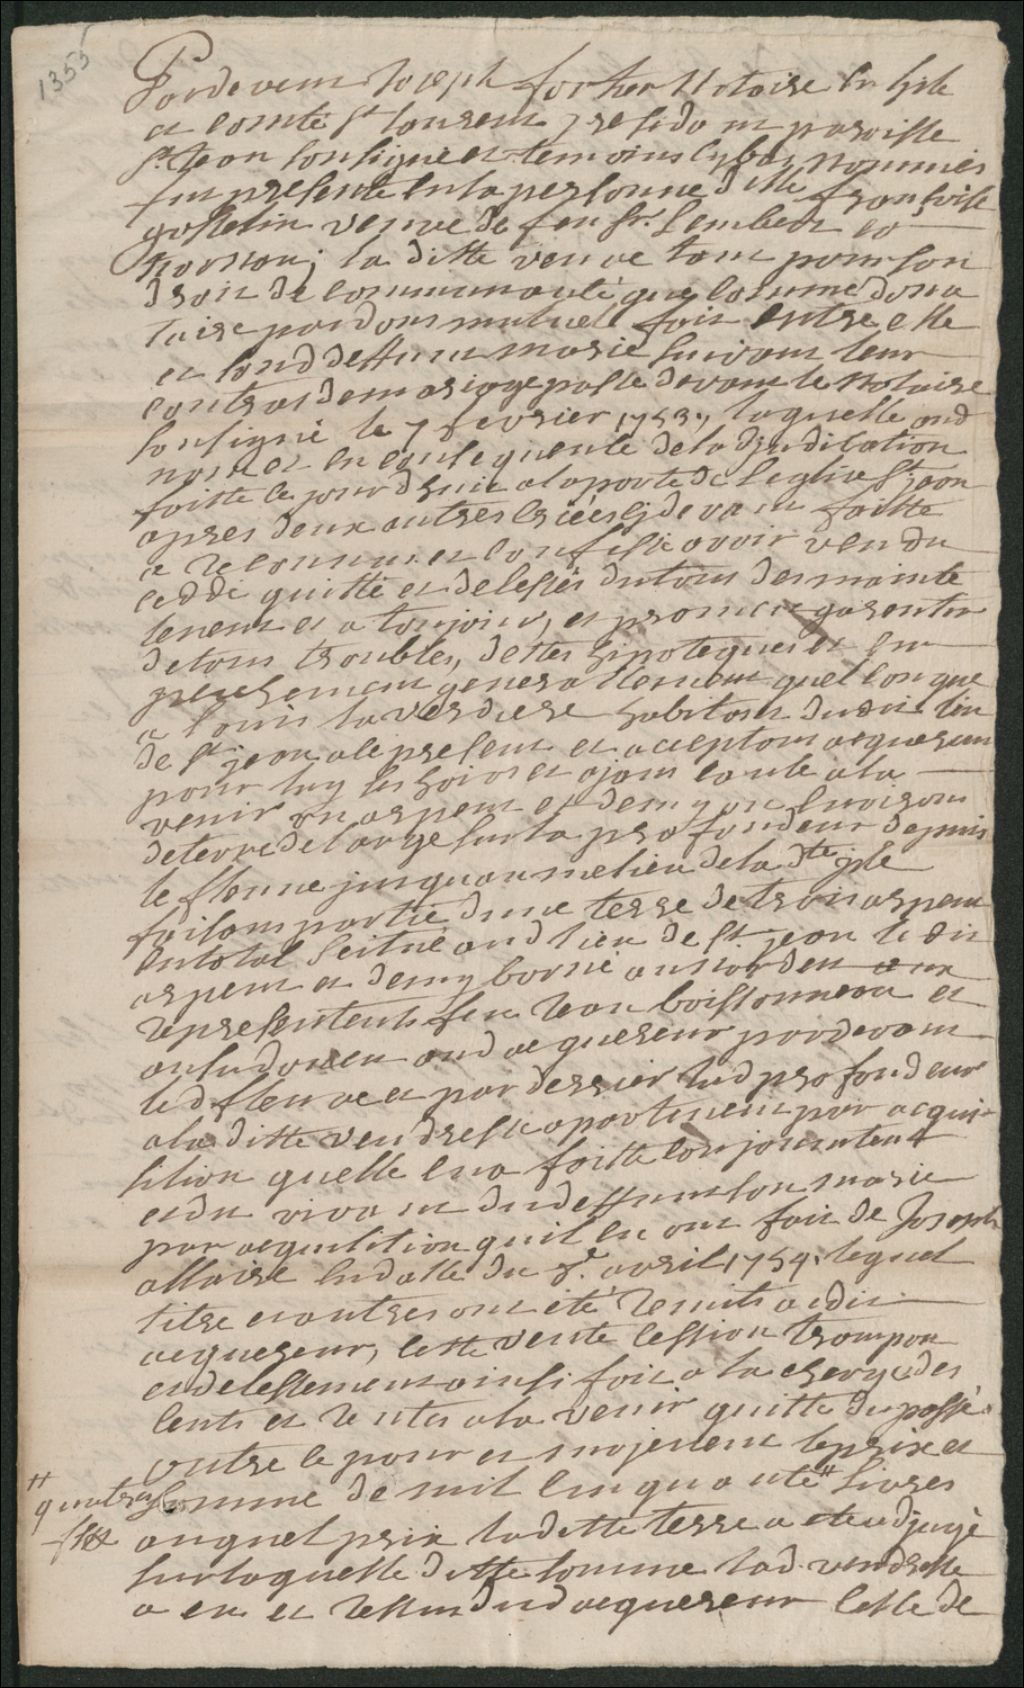 1355
Pardevent Joseph fortier Notaire En Lisle
et comté st laurent residant paroisse
st Jean sousigné et temoins cy bas nommés
fut presente En la personne dlle françoise
gosselin veuve de feu sr. Lembert
la ditte veuve tant pour son
droit de communauté que comme dona
taire par don mutuele fait Entre elle
et sond deffunt marie suivant leur
contrat de mariage passé devant le Notaire
sousigné le 7 fevrier 1753., laquelle aud
nom et En consequence de ladjudication
faitte ce jourdhuie a la porte de Leglise st jean
apres deux autres criées cy devant faitte
a reconnu et confessé avoir vendu
ceddé quitté et delessés du tout des mainte
tenent et a toujours, et promet garentir
de tous troubles, dettes hipoteques et Em
peschement generallement quelconque
a louis laverdiere habitant dudit lieu
de st jean a ce present et acceptant aquereur
pour luy ses hoirs et ajant cause a la
venir un arpent et demy ou Environt
de terre de large sur la profondeur depuis
le fleuve jusquau melieu de la dte isle
faisant partie dune terre de trois arpent
En total scitué aud lieu de st. jean le dit
arpent et demy borné au nordest aux
representents feu Jean boissonneau et
au sudouest aud aquereur par devant
led fleuve et par derrier lad profondeur
a la ditte vendresse apartenent par acqui-
sition quelle En a faitte conjointement
et du vivant dudeffunt son marie
par aquisition quil En ont fait de Joseph
allaire En datte du 8.e avril 1754. lequel
titre et autres ont été remits audit
aquereur, cette vente cession transpor
et delessement ainsi fait a la charge des
cents et rentes a la venir quitte du passé.
outre ce pour et mojenent le prix et
somme de mil cinquante # livres
# quatre
auquel prix la ditte terre a eté adjugé
sur laquelle ditte somme lad. vendresse
a eu et ressu dud aquereur celle de